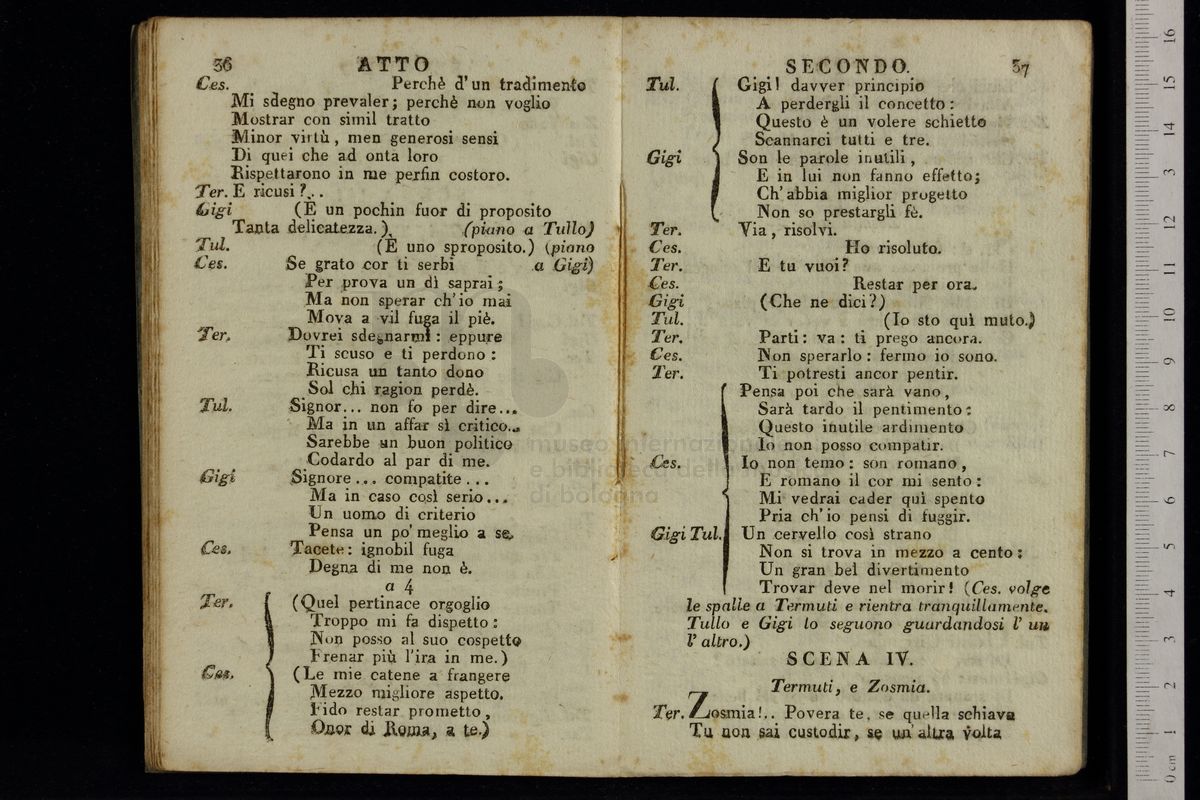 36 ATTO
Ces. Perchè d'un tradimento
Mi sdegno prevaler; perchè non voglio
Mostrar con simil tratto
Minor virtù, men generosi sensi
Di quei che ad onta loro
Rispettarono in me perfin costoro.
Ter. E ricusi?...
Gigi (È un pochin fuor di proposito
Tanta delicatezza.) (piano a Tullo)
Tul. (È uno sproposito.) (piano
Ces. Se grato cor ti serbi a Gigi)
Per prova un dì saprai;
Ma non sperar ch'io mai
Mova a vil fuga il piè.
Ter. Dovrei sdegnarmi: eppure
Ti scuso e ti perdono:
Ricusa un tanto dono
Sol chi ragion perdè.
Tul. Signor... non fo per dire...
Ma in un affar sì critico...
Sarebbe un buon politico
Codardo al par di me.
Gigi Signore... compatite...
Ma in caso così serio...
Un uomo di criterio
Pensa un po' meglio a se.
Ces. Tacete: ignobil fuga
Degna di me non è.
a 4
Ter. (Quel pertinace orgoglio
Troppo mi fa dispetto:
Non posso al suo cospetto
Frenar più l'ira in me.)
Ces. (Le mie catene a frangere
Mezzo migliore aspetto.
Fido restar prometto,
Onor di Roma, a te.)
SECONDO. 37
Tul. Gigi! davver principio
A perdergli il concetto:
Questo è un volere schietto
Scannarci tutti e tre.
Gigi Son le parole inutili,
E in lui non fanno effetto;
Ch'abbia miglior progetto
Non so prestargli fè.
Ter. Via, risolvi.
Ces. Ho risoluto.
Ter. E tu vuoi?
Ces. Restar per ora.
Gigi (Che ne dici?)
Tul. (Io sto quì muto.)
Ter. Parti: va: ti prego ancora.
Ces. Non sperarlo: fermo io sono.
Ter. Ti potresti ancor pentir.
Pensa poi che sarà vano,
Sarà tardo il pentimento:
Questo inutile ardimento
Io non posso compatir.
Ces. Io non temo: son romano,
E romano il cor mi sento:
Mi vedrai cader quì spento
Pria ch'io pensi di fuggir.
Gigi Tul. Un cervello così strano
Non si trova in mezzo a cento:
Un gran bel divertimento
Trovar deve nel morir! (Ces. volge
le spalle a Termuti e rientra tranquillamente.
Tullo e Gigi lo seguono guardandosi l'un
l'altro.)
SCENA IV.
Termuti, e Zosmia.
Ter. Zosmia!.. Povera te, se quella schiava
Tu non sai custodir, se un'altra volta
museo internazionale
e biblioteca della musica
di bologna
0 cm 1 2 3 4 5 6 7 8 9 10 11 12 13 14 15 16